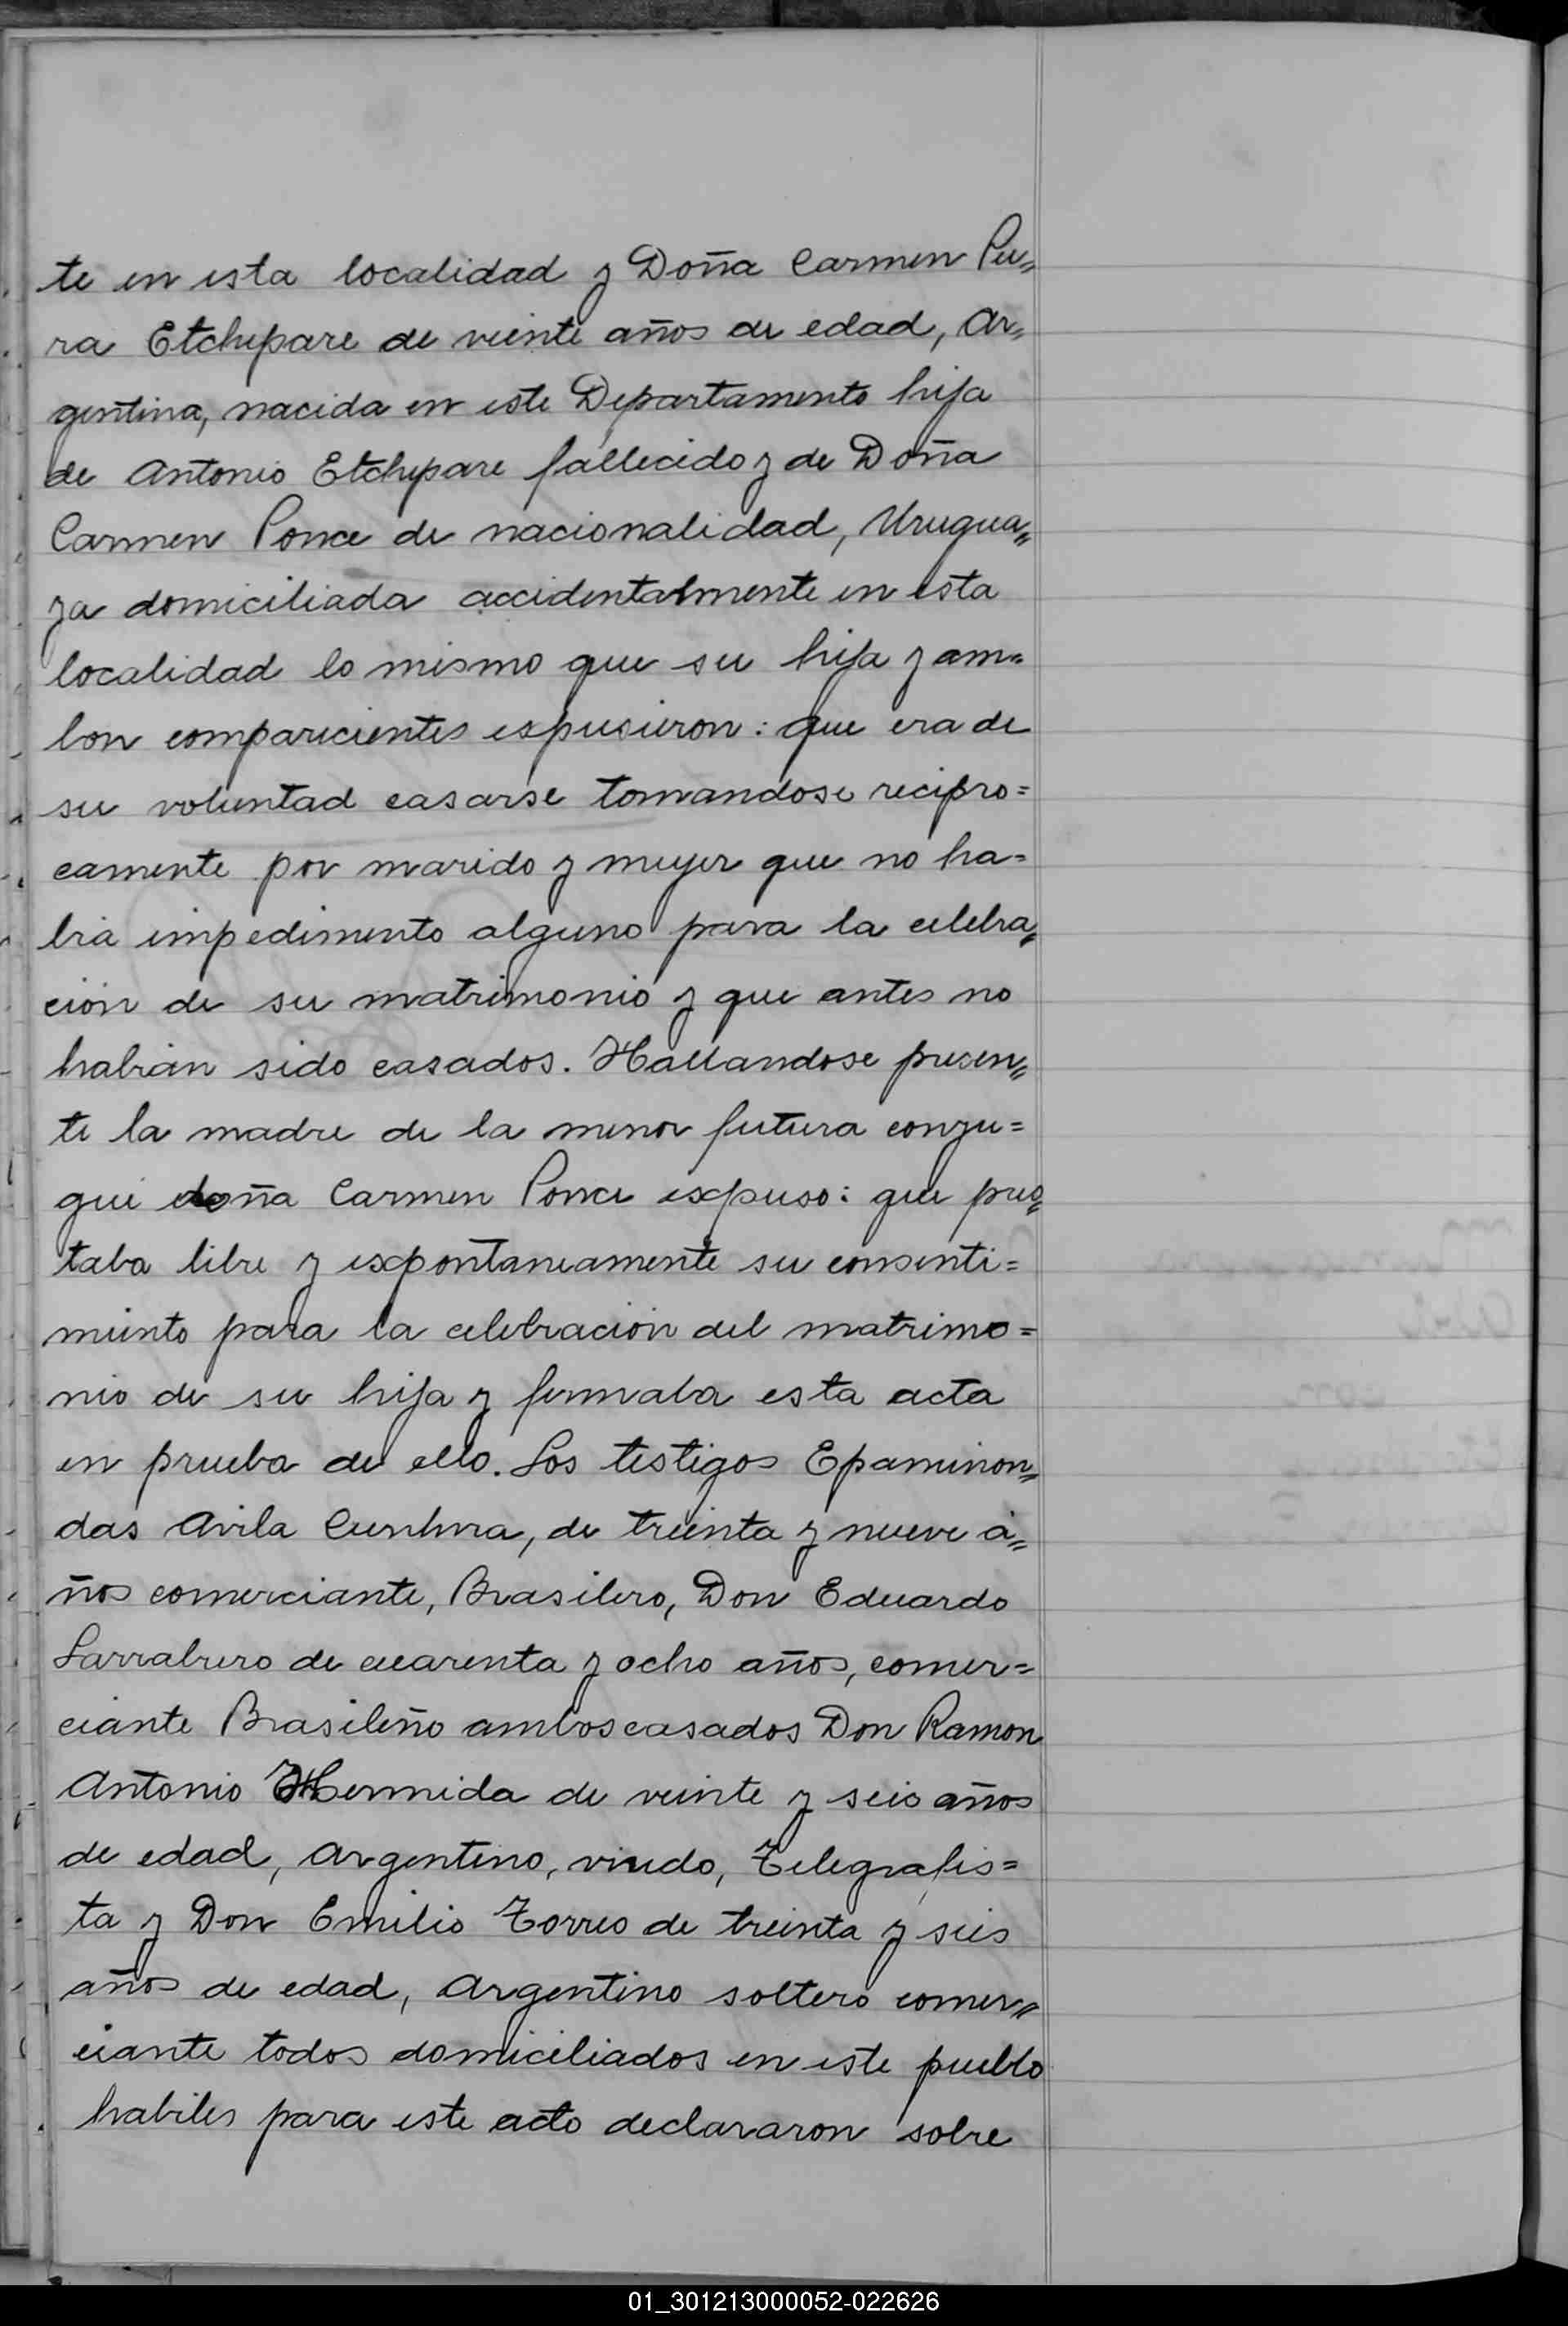 te en esta localidad y Doña Carmen Pu„
ra Etchepare de veinte años de edad, Ar„
gentina, nacida en este Departamento hija
de Antonio Etchepare fallecido y de Doña
Carmen Ponce de nacionalidad, Urugua„
ya domiciliada accidentalmente en esta
localidad lo mismo que su hija y am=
bon comparecientes expusieron: que era de
su voluntad casarse tomandose recipro=
camente por marido y mujer que no ha=
bia impedimento alguno para la celebra„
ción de su matrimonio y que antes no
habian sido casados. Hallandose presen„
te la madre de la menor futura conyu=
gue doña Carmen Ponce expuso: que pres„
taba libre y expontaneamente su consenti=
miento para la celebración del matrimo=
nio de su hija y firmaba esta acta
en prueba de ello. Los testigos Epaminon„
das Avila Cunhna, de treinta y nueve a„
ños comerciante, Brasilero, Don Eduardo
Larrabrero de cuarenta y ocho años, comer=
ciante Brasileño ambos casados Don Ramon
Antonio Hermida de veinte y seis años
de edad, Argentino, viudo, Telegrafis=
ta y Don Emilio Torres de treinta y seis
años de edad, Argentino soltero comer„
ciante todos domiciliados en este pueblo
habiles para este acto declararon sobre
01_301213000052-022626